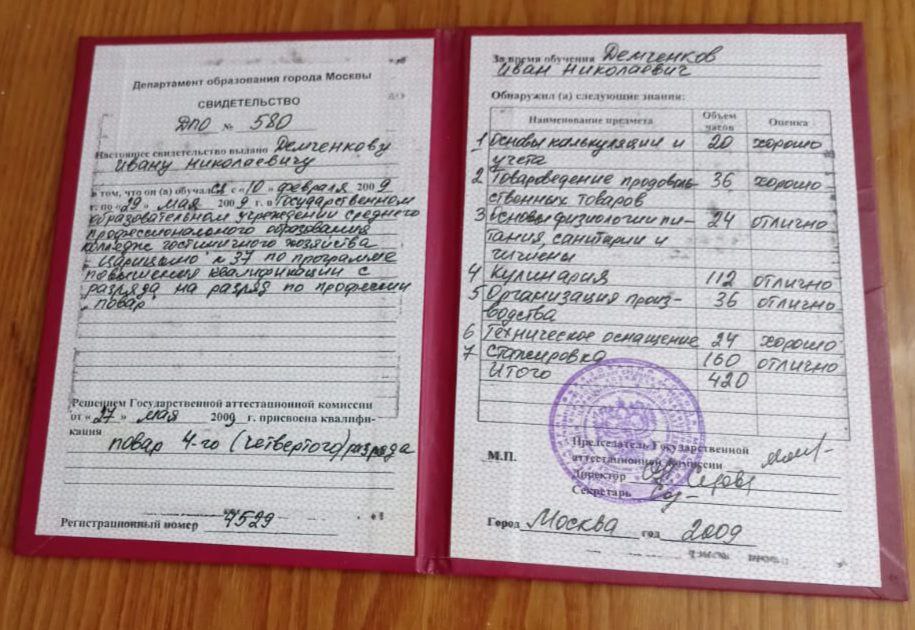 Департамент образования города Москвы
СВИДЕТЕЛЬСТВО
ДПО № 580
Настоящее свидетельство выдано Демченкову
Ивану Николаевичу
в том, что он (а) обучался с «10» февраля 2009
г. по «29» мая 2009 г. в Государственном
образовательном учреждении среднего
профессионального образования
колледж гостиничного хозяйства
"Царицыно" № 37 по программе
повышения квалификации с
разряда на разряд по профессии
"повар"
Решением Государственной аттестационной комиссии
от «27» мая 2009 г. присвоена квалифи-
кация
повар 4-го (четвертого) разряда
Регистрационный номер 4529
За время обучения Демченков
Иван Николаевич
Обнаружил (а) следующие знания:
Наименование предмета Объем часов Оценка
1 Основы калькуляции и 20 хорошо
учета
2 Товароведение продоволь- 36 хорошо
ственных товаров
3 Основы физиологии пи- 24 отлично
тания, санитарии и
гигиены
4 Кулинария 112 отлично
5 Организация произ- 36 отлично
водства
6 Техническое оснащение 24 хорошо
7 Стажировка 160 отлично
Итого 420
М.П.
Председатель Государственной
аттестационной комиссии
Директор
Секретарь
Город Москва год 2009